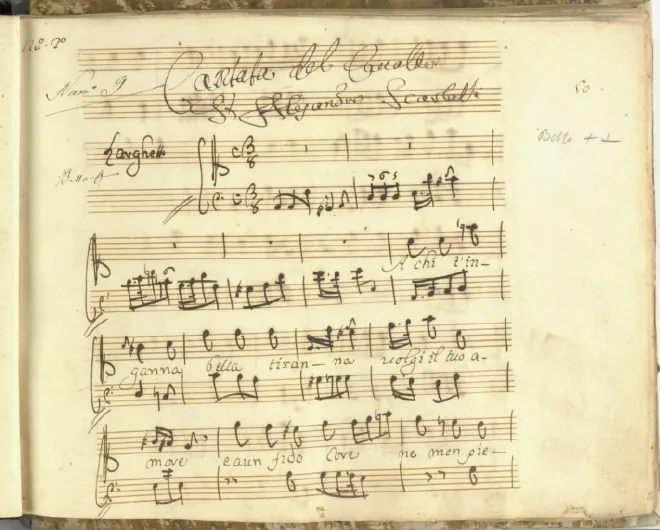 No. 70
Num.o 9
Cantata del Cavallro
Sr. Alejandro Scarlatti
50
Larghetto
A chi t'in-
ganna bella tiran-na volgi il tuo a-
more e a un fido Core ne men pie-